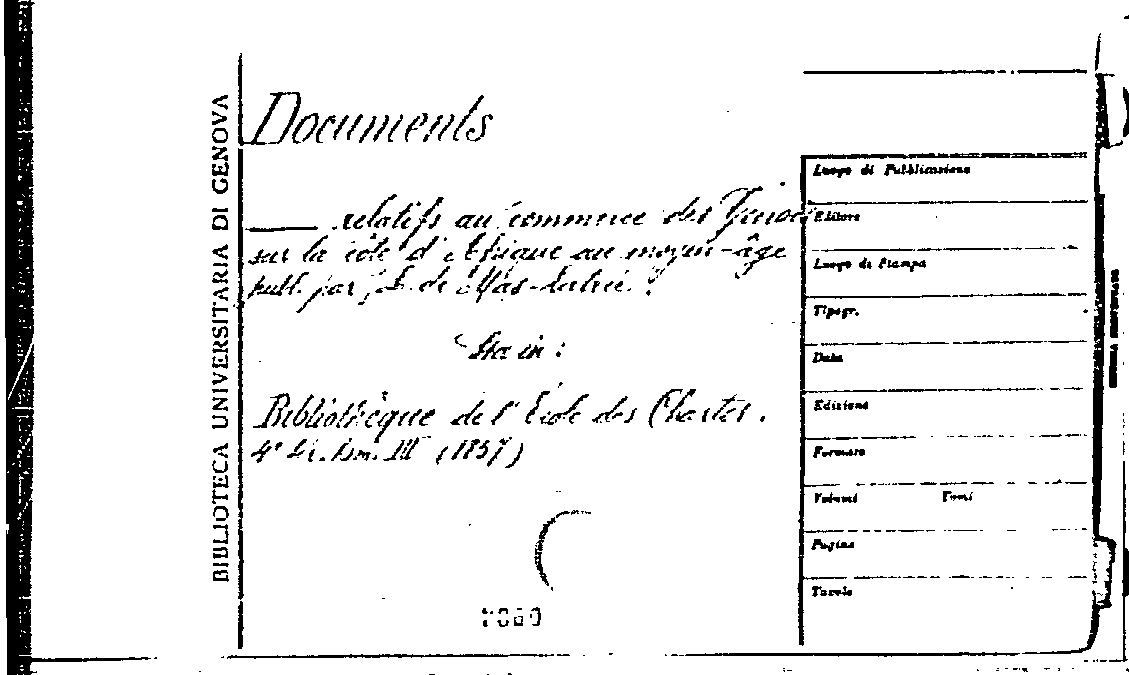 BIBLIOTECA UNIVERSITARIA DI GENOVA
Documents
relatifs au commerce des Génois
sur la côte d'Afrique au moyen-âge
publ. par L. de Mas-Latrie.
Sta in:
Bibliothèque de l'École des Chartes.
4e Sér. Tom. III (1857)
Luogo di Pubblicazione
Editore
Luogo di Stampa
Tipogr.
Data
Edizione
Formato
Volumi Tomi
Pagine
Tavole